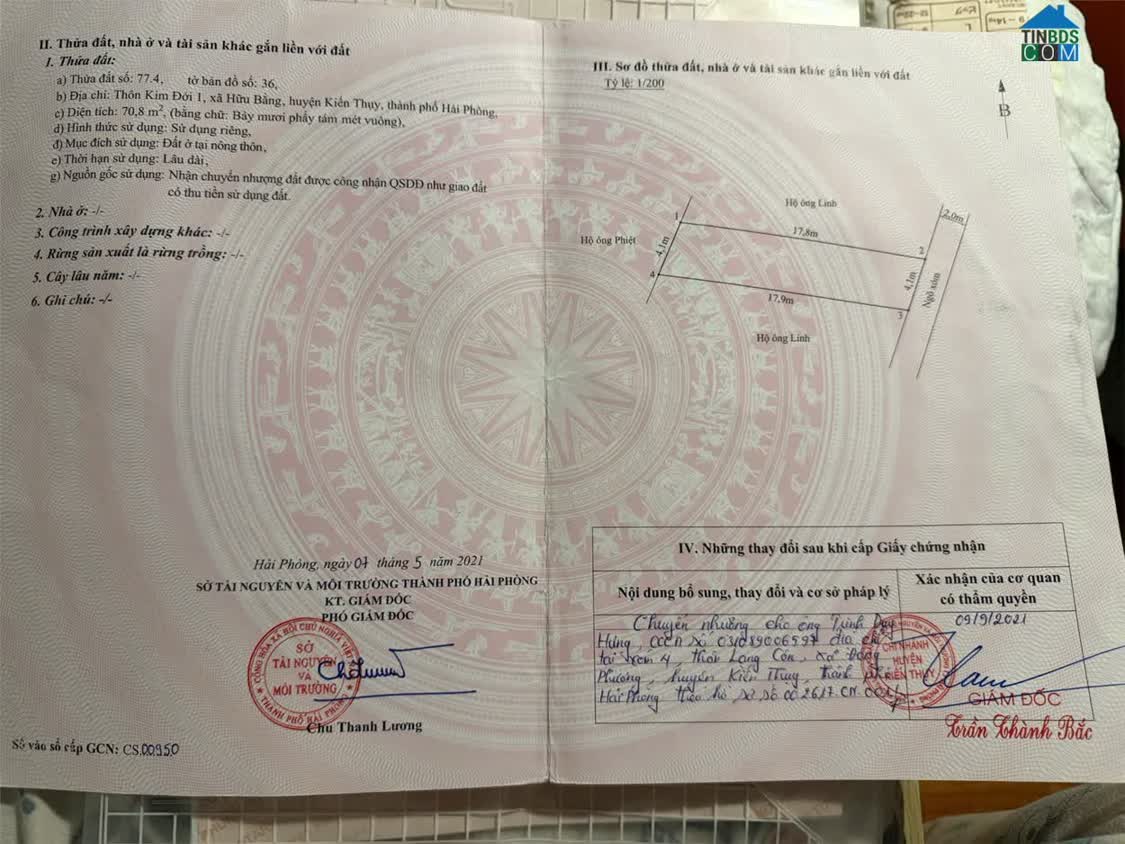 II. Thửa đất, nhà ở và tài sản khác gắn liền với đất
1. Thửa đất:
a) Thửa đất số: 77.4, tờ bản đồ số: 36,
b) Địa chỉ: Thôn Kim Đới 1, xã Hữu Bằng, huyện Kiến Thụy, thành phố Hải Phòng,
c) Diện tích: 70,8 m², (bằng chữ: Bảy mươi phẩy tám mét vuông),
d) Hình thức sử dụng: Sử dụng riêng,
đ) Mục đích sử dụng: Đất ở tại nông thôn,
e) Thời hạn sử dụng: Lâu dài,
g) Nguồn gốc sử dụng: Nhận chuyển nhượng đất được công nhận QSDĐ như giao đất
có thu tiền sử dụng đất.
2. Nhà ở: -/-
3. Công trình xây dựng khác: -/-
4. Rừng sản xuất là rừng trồng: -/-
5. Cây lâu năm: -/-
6. Ghi chú: -/-
Hải Phòng, ngày 07 tháng 5 năm 2021
SỞ TÀI NGUYÊN VÀ MÔI TRƯỜNG THÀNH PHỐ HẢI PHÒNG
KT. GIÁM ĐỐC
PHÓ GIÁM ĐỐC
CỘNG HÒA XÃ HỘI CHỦ NGHĨA VIỆT
SỞ
TÀI NGUYÊN
VÀ
MÔI TRƯỜNG
THÀNH PHỐ HẢI PHÒNG
Chu Thanh Lương
Số vào sổ cấp GCN: CS.00950
TINBDS
COM
III. Sơ đồ thửa đất, nhà ở và tài sản khác gắn liền với đất
Tỷ lệ: 1/200
B
Hộ ông Linh
2,0m
1
17,8m
2
Hộ ông Phiệt
4,1m
4,1m
Ngõ xóm
4
17,9m
3
Hộ ông Linh
IV. Những thay đổi sau khi cấp Giấy chứng nhận
Nội dung bổ sung, thay đổi và cơ sở pháp lý
Xác nhận của cơ quan
có thẩm quyền
Chuyển nhượng cho ông Trịnh Duy
Hưng, CCCD số 031089006597 địa chỉ
tại xóm 4, thôn Lạng Côn, xã Đông
Phương, huyện Kiến Thụy, thành phố
Hải Phòng theo hồ sơ số 002617.CN.
09/9/2021
CHI NHÁNH
HUYỆN
KIẾN THỤY
GIÁM ĐỐC
Trần Thành Bắc